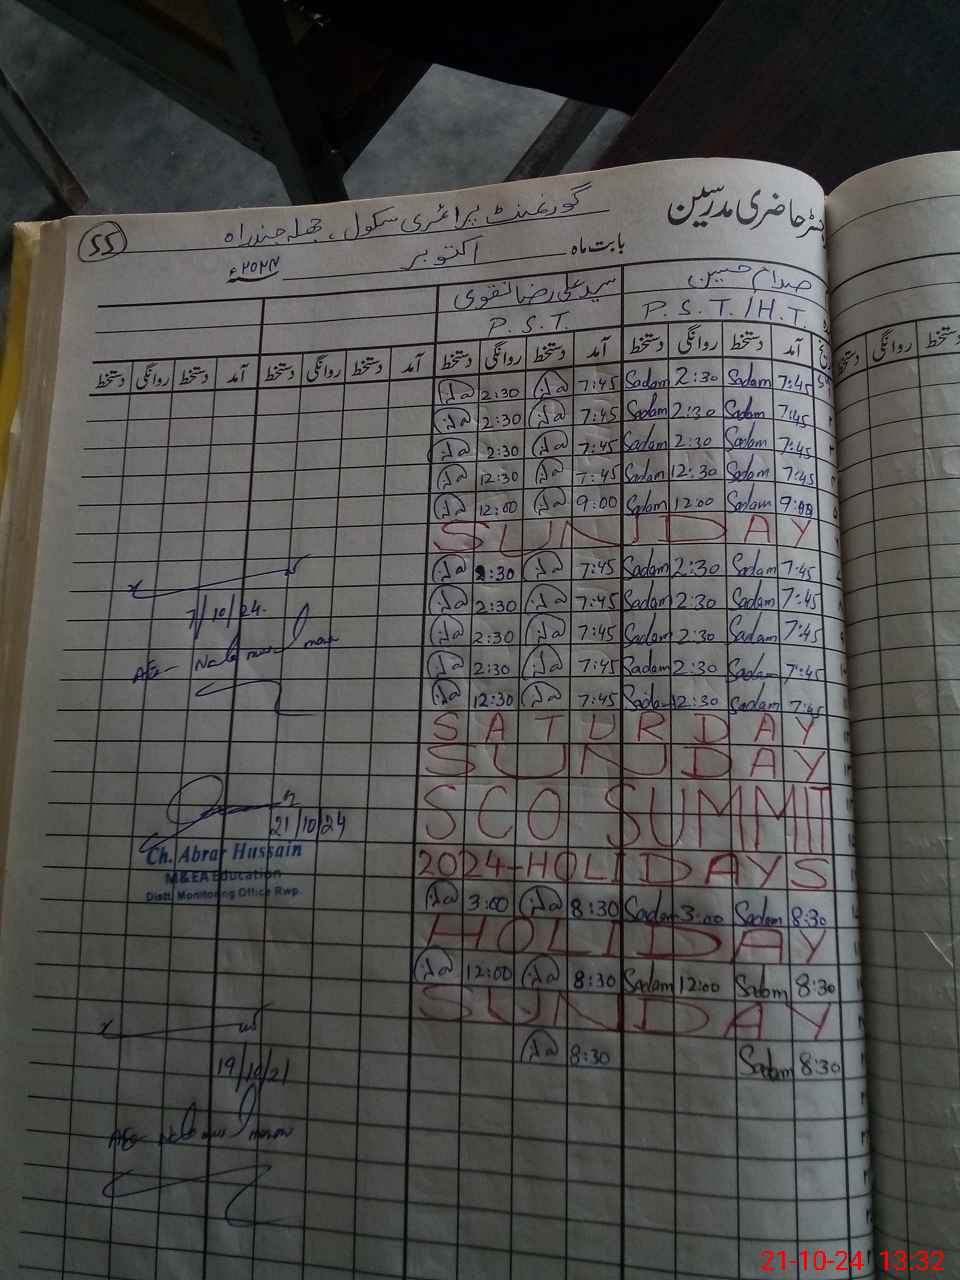 رجسٹر حاضری مدرسین
گورنمنٹ پرائمری سکول، جھلہ جندراہ
55
بابت ماہ اکتوبر ۲۰۲۴ء
صدام حسین سید علی رضا نقوی
P.S.T./H.T. P.S.T.
آمد دستخط روانگی دستخط آمد دستخط روانگی دستخط آمد دستخط روانگی دستخط آمد دستخط روانگی دستخط
7:45 Sadam 2:30 Sadam 7:45 2:30
7:45 Sadam 2:30 Sadam 7:45 2:30
7:45 Sadam 2:30 Sadam 7:45 2:30
7:45 Sadam 12:30 Sadam 7:45 12:30
9:00 Sadam 12:00 Sadam 9:00 12:00
SUNDAY
7:45 Sadam 2:30 Sadam 7:45 2:30
7:45 Sadam 2:30 Sadam 7:45 2:30
7:45 Sadam 2:30 Sadam 7:45 2:30
7:45 Sadam 2:30 Sadam 7:45 2:30
7:45 Sadam 12:30 Sadam 7:45 12:30
SATURDAY
SUNDAY
SCO SUMMIT
2024-HOLIDAYS
8:30 Sadam 3:00 Sadam 8:30 3:00
HOLIDAY
8:30 Sadam 12:00 Sadam 8:30 12:00
SUNDAY
8:30 Sadam 8:30
7/10/24
21/10/24
Ch. Abrar Hussain
M&EA Education
Distt. Monitoring Office Rwp.
19/10/21
روانگی دستخط
21-10-24 13:32